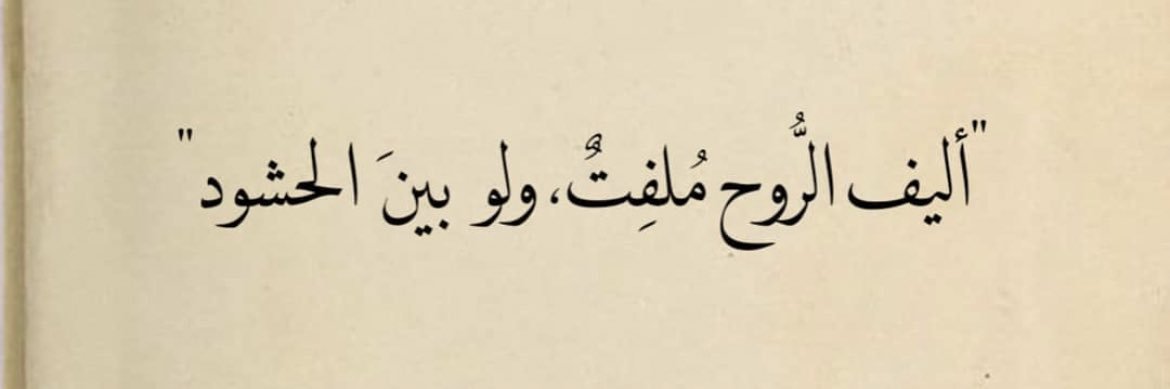 "أليف الرُّوح مُلفِتٌ، ولو بينَ الحشود"